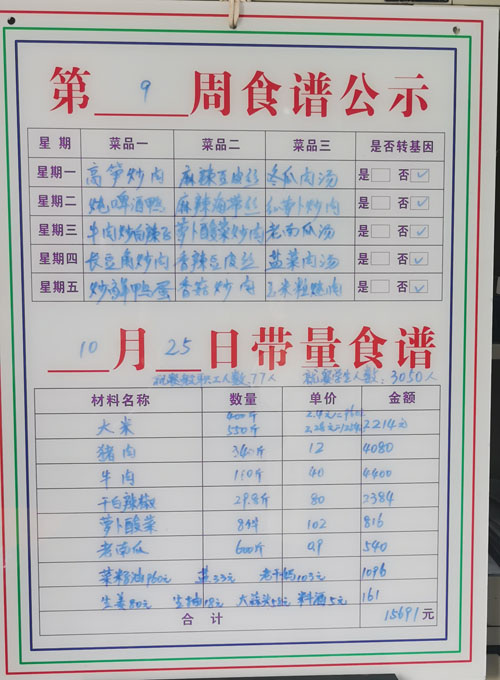 第 9 周食谱公示
星期 菜品一 菜品二 菜品三 是否转基因
星期一 高笋炒肉 麻辣豆皮丝 冬瓜肉汤 是 否✓
星期二 炖啤酒鸭 麻辣海带丝 红萝卜炒肉 是 否✓
星期三 牛肉炒白辣 萝卜酸菜炒肉 老南瓜汤 是 否✓
星期四 长豆角炒肉 香辣豆皮丝 盐菜肉汤 是 否✓
星期五 炒鲜鸭蛋 香菇炒肉 玉米粒炖肉 是 否✓
10 月 25 日带量食谱
就餐教职工人数:77人 就餐学生人数:3050人
材料名称 数量 单价 金额
大米 400斤 550斤 2214元
猪肉 340斤 12 4080
牛肉 110斤 40 4400
干白辣椒 29.8斤 80 2384
萝卜酸菜 8件 102 816
老南瓜 600斤 0.9 540
菜籽油960元 盐33元 老干妈103元 1096
生姜80元 生抽18元 大蒜头58元 料酒5元 161
合计 15691元